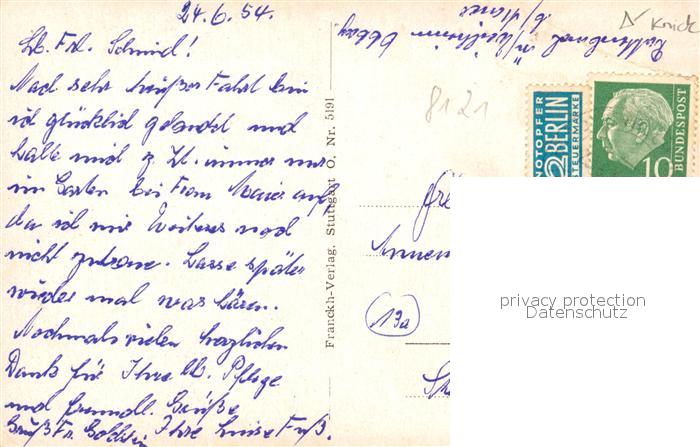 24.6.54.
Lb. Frl. Schmid!
Nach sehr heißer Fahrt bin
ich glücklich gelandet und
halte mich z. Zt. immer nur
im Garten bei Frau Maier auf,
da ich mir Weiteres noch
nicht zutraue. Lasse später
wieder mal was hören.
Nochmals vielen herzlichen
Dank für Ihre lb. Pflege
und freundl. Grüße
Gruß Fr. Ihre Luise Fuß.
Franckh-Verlag, Stuttgart O, Nr. 5191
Knick
8121
NOTOPFER
2 BERLIN
STEUERMARKE
10
BUNDESPOST
(13a)
privacy protection
Datenschutz